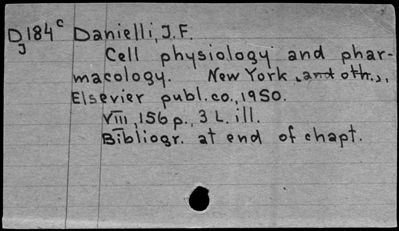 DJ184c Danielli, J.F.
Cell physiology and phar-
macology. New York, and oth.,
Elsevier publ.co., 1950.
VIII, 156 p., 3 L. ill.
Bibliogr. at end of chapt.